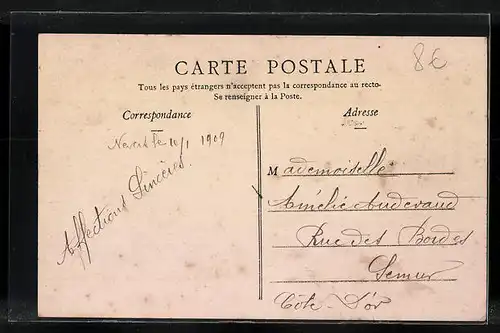 8€
CARTE POSTALE
Tous les pays étrangers n'acceptent pas la correspondance au recto-
Se renseigner à la Poste.
Correspondance
Adresse
1909
Affections Sincères.
Mademoiselle
Amélie Audevaud
Rue des Bordes
Semur
Côte-d'or